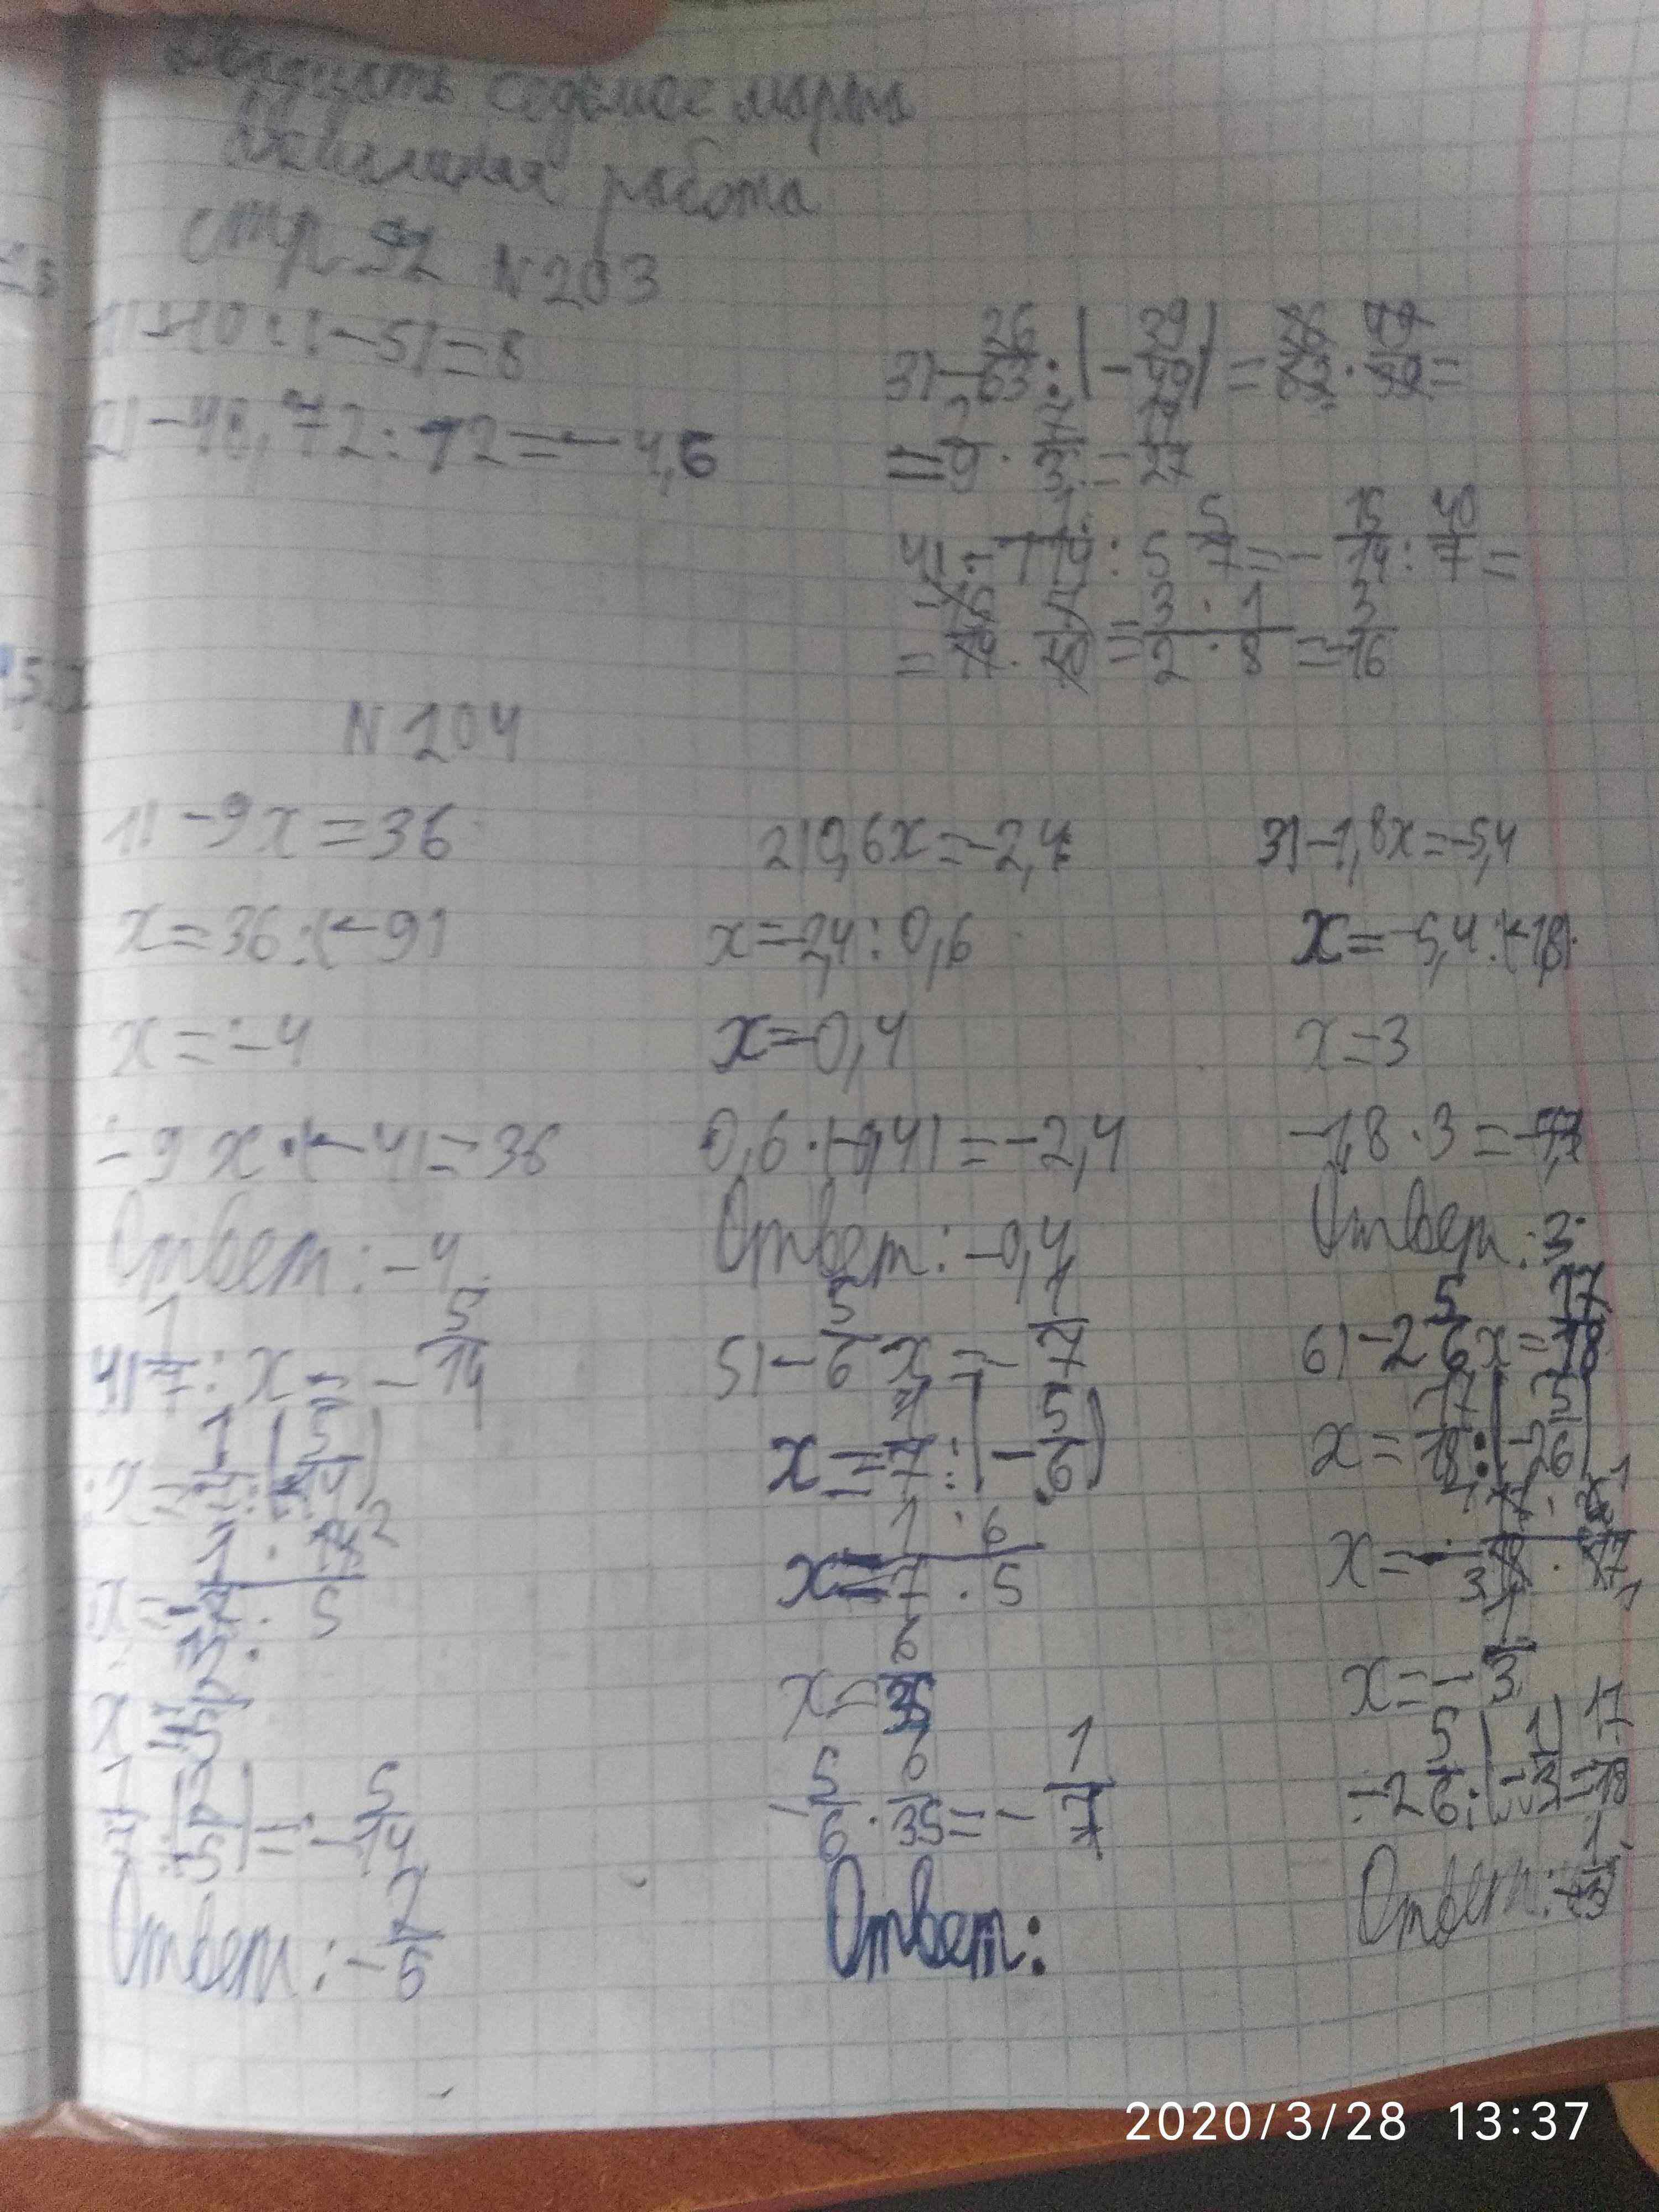 Двадцать седьмое марта
работа
стр 92 N 203
1) -40 : (-5) = 8
2) -4 , 72 : 12 = -4,6
3) - 26/63 : (- 39/49) = 26/63 · 49/39 =
= 2/9 · 7/3 = 14/27
4) - 1 1/14 : 5 5/7 = - 15/14 : 40/7 =
= - 15/14 · 7/40 = 3 · 1 / 2 · 8 = - 3/16
N 204
1) -9x = 36
x = 36 : (-9)
x = -4
-9 x · (-4) = 36
Ответ: -4
2) 0,6x = -2,4
x = -2,4 : 0,6
x = -0,4
0,6 · (-0,4) = -2,4
Ответ: -0,4
3) -1,8x = -5,4
x = -5,4 : (-1,8)
x = 3
-1,8 · 3 =
Ответ: 3
4) 1/7 : x = - 5/14
x = 1/7 : ( 5/14)
x = - 1 · 2 / · 5
x
1/7 : ( ) = - 5/14
Ответ: - 2/5
5) - 5/6 x = - 1/7
x = - 1/7 : (- 5/6)
x = 1 · 6 / 7 · 5
x = 6/35
- 5/6 · 6/35 = - 1/7
Ответ:
6) -2 5/6 x = 17/18
x = 17/18 : (-2 5/6)
x = - 17 · 6 / 18 · 17
x = - 1/3
-2 5/6 · (- 1/3) = 17/18
Ответ: - 1/3
2020/3/28 13:37